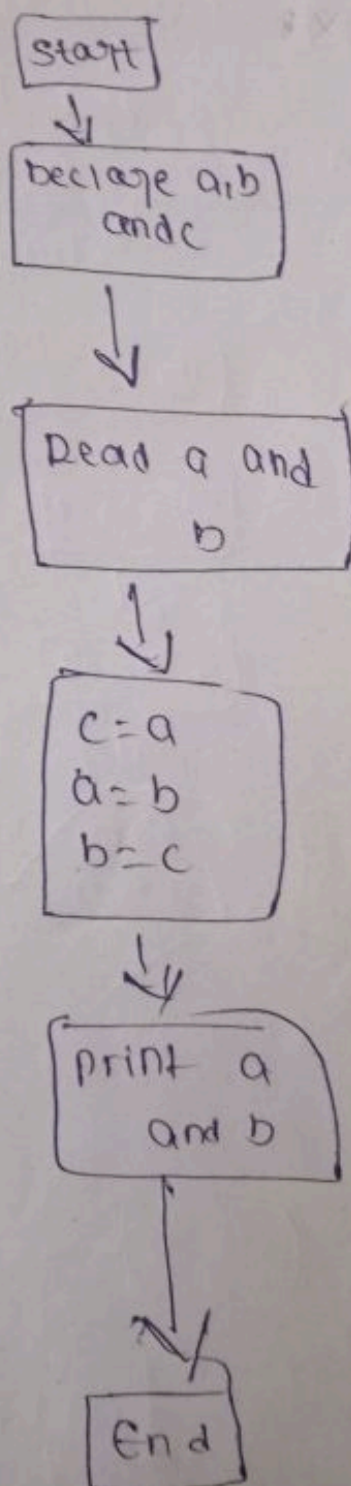 Start
Declare a,b
and c
Read a and
b
c=a
a=b
b=c
print a
and b
End